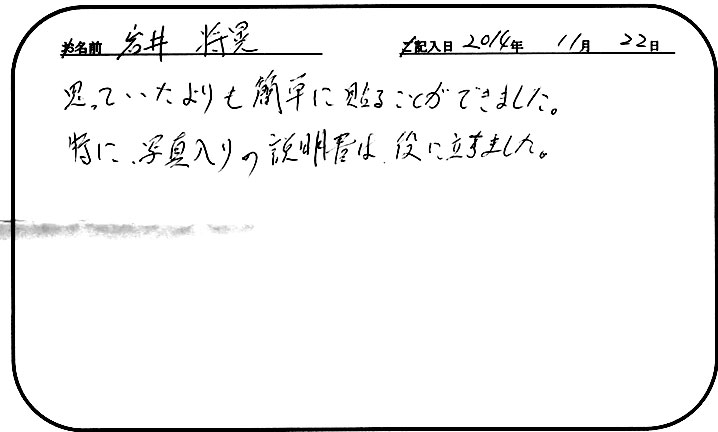 お名前 岩井 将晃 ご記入日 2014年 11月 22日
思っていたよりも簡単に貼ることができました。
特に、写真入りの説明書は、役に立ちました。